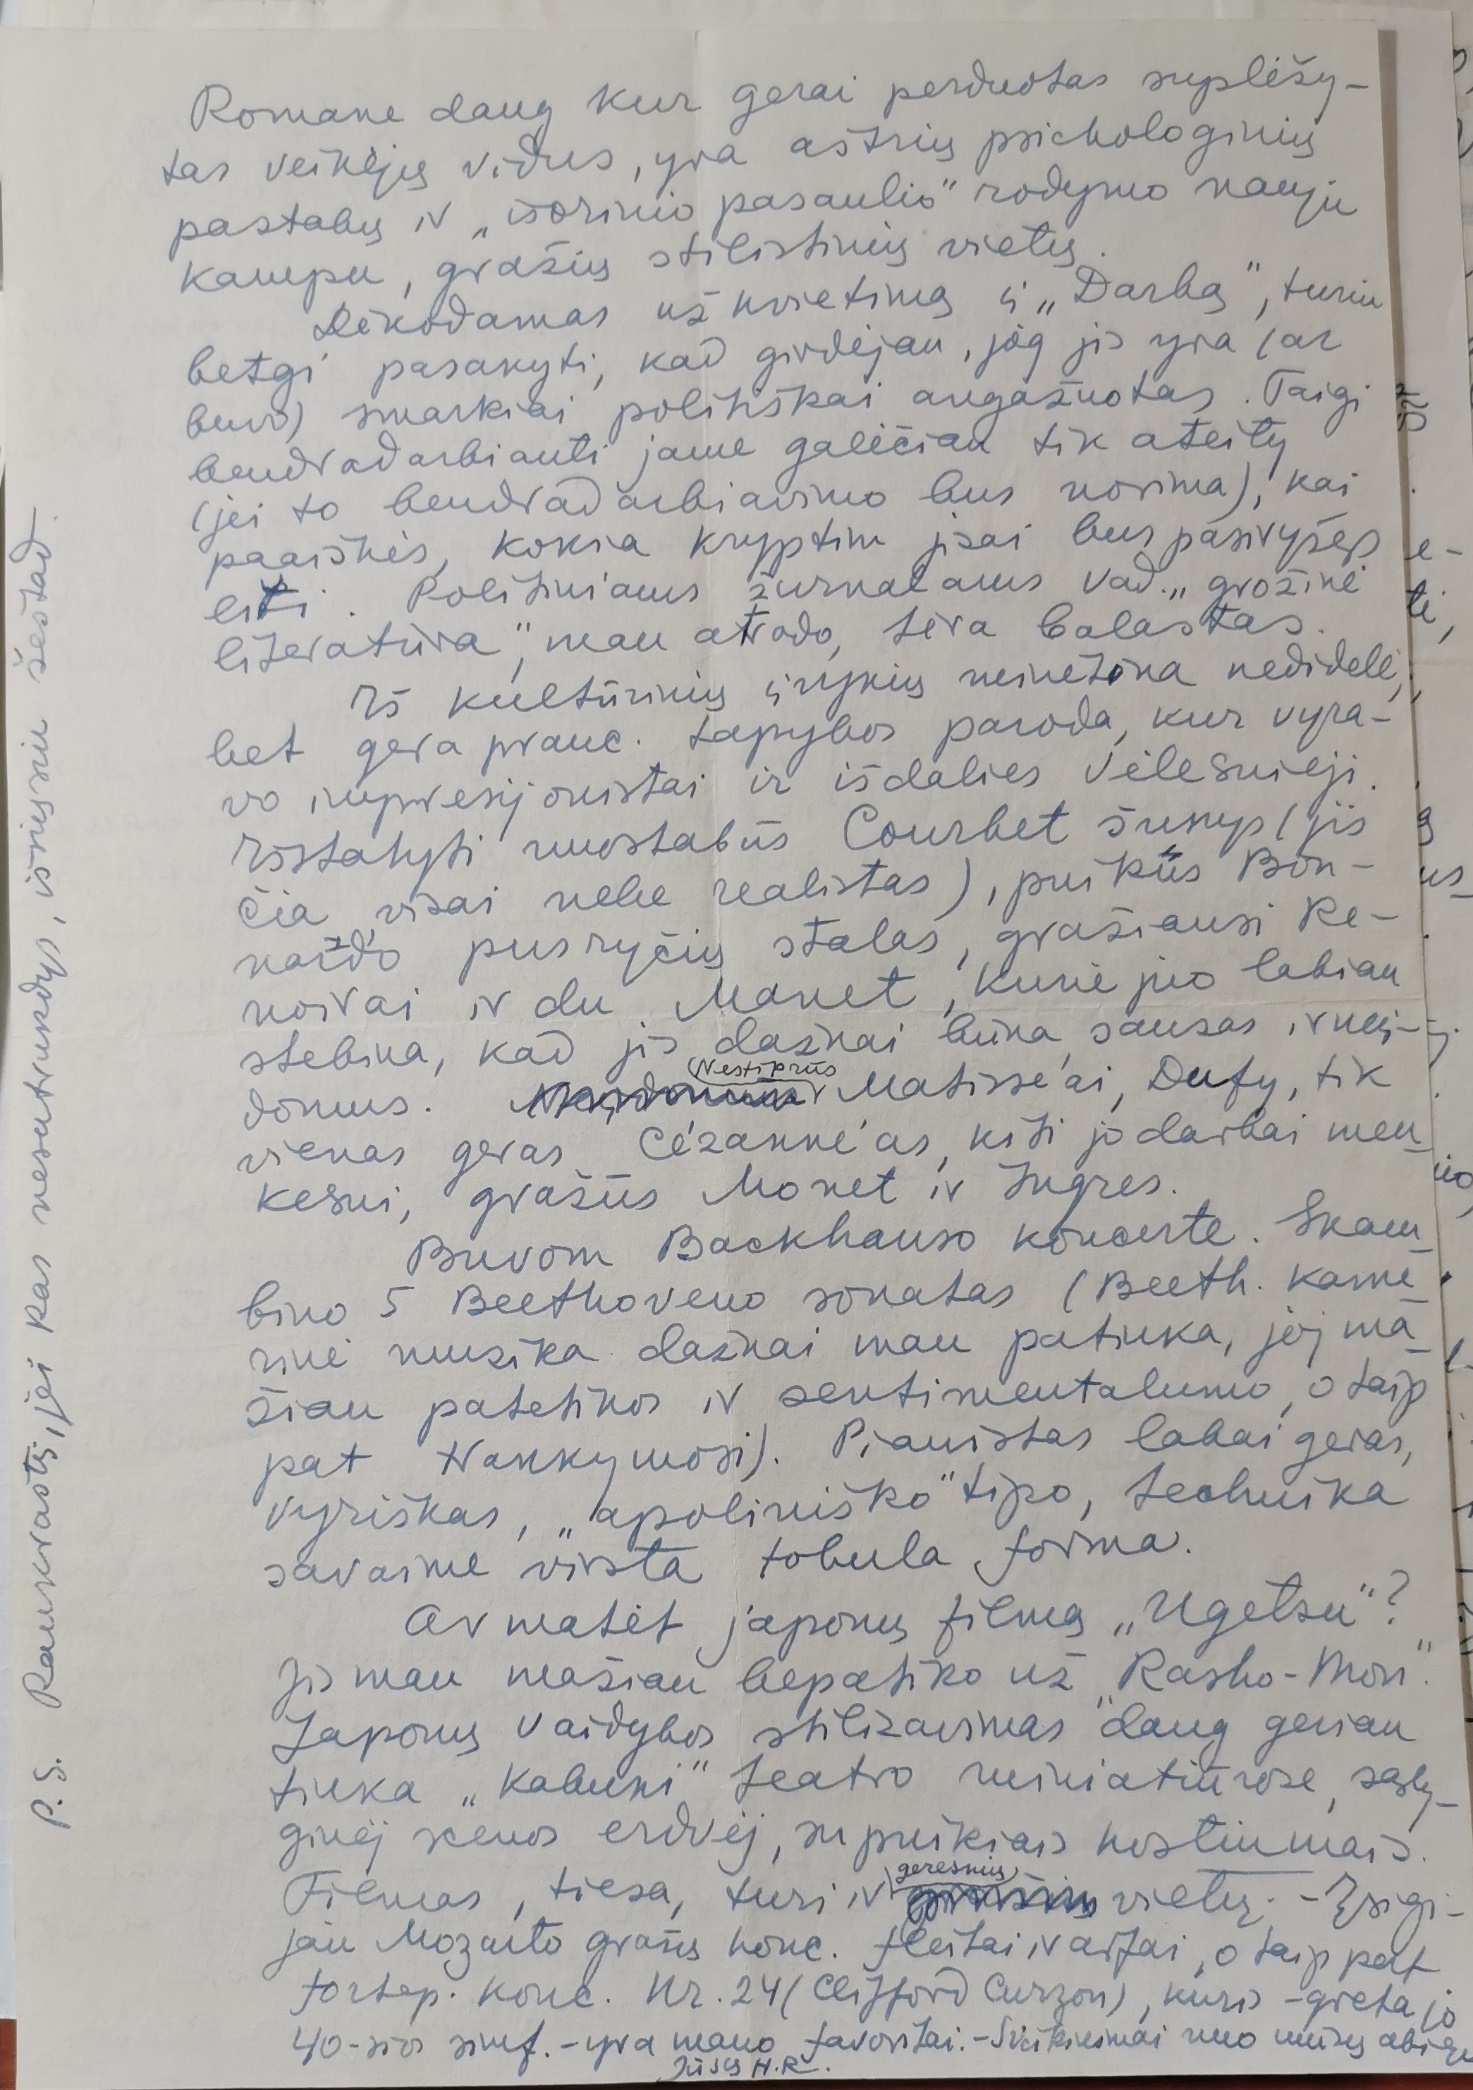 Romane daug kur gerai perduotas suplėšy-
tas veikėjų vidus, yra aštrių psichologinių
pastabų ir „išorinio pasaulio" rodymo nauju
kampu, gražių stilistinių vietų.
Dėkodamas už kvietimą į „Darbą", turiu
betgi pasakyti, kad girdėjau, jog jis yra (ar
buvo) smarkiai politiškai angažuotas. Taigi
bendradarbiauti jame galėčiau tik ateity
(jei to bendradarbiavimo bus norima), kai
paaiškės, kokia kryptim jisai bus pasiryžęs
eiti. Politiniams žurnalams vad. „grožinė
literatūra", man atrodo, tėra balastas.
Iš kultūrinių įvykių minėtina nedidelė,
bet gera pranc. tapybos paroda, kur vyra-
vo impresijonistai ir išdalies vėlesnieji.
Išstatyti nuostabūs Courbet šunys (jis
čia visai nebe realistas), puikūs Bon-
nard'o pusryčių stalas, gražiausi Re-
noirai ir du Manet, kurie juo labiau
stebina, kad jis dažnai būna sausas ir neį-
domus. Nestiprūs Matisse'ai, Dufy, tik
vienas geras Cézanne'as, kiti jo darbai men
kesni, gražūs Monet ir Ingres.
Buvom Backhauso koncerte. Skam
bino 5 Beethoveno sonatas (Beeth. kame
rinė muzika dažnai man patinka, joj ma
žiau patetikos ir sentimentalumo, o taip
pat trankymosi). Pianistas labai geras,
vyriškas, „apoliniško" tipo, technika
savaime virsta tobula forma.
Ar matėt japonų filmą „Ugetsu"?
Jis man mažiau bepatiko už „Rasho-Mon".
Japonų vaidybos stilizavimas daug geriau
tinka „Kabuki" teatro miniatiūrose, sąly-
ginėj scenos erdvėj, su puikiais kostiumais.
Filmas, tiesa, turi ir geresnių vietų. - Įsigi-
jau Mozarto gražų konc. fleitai ir arfai, o taip pat
fortep. konc. Nr. 24 (Clifford Curzon), kuris - greta jo
40-sios simf. - yra mano favoritai. - Sveikinimai nuo mūsų abiejų
Jūsų H.R.
P.S. Rankraštį, jei kas nesutrukdys, išsiųsiu šeštad.